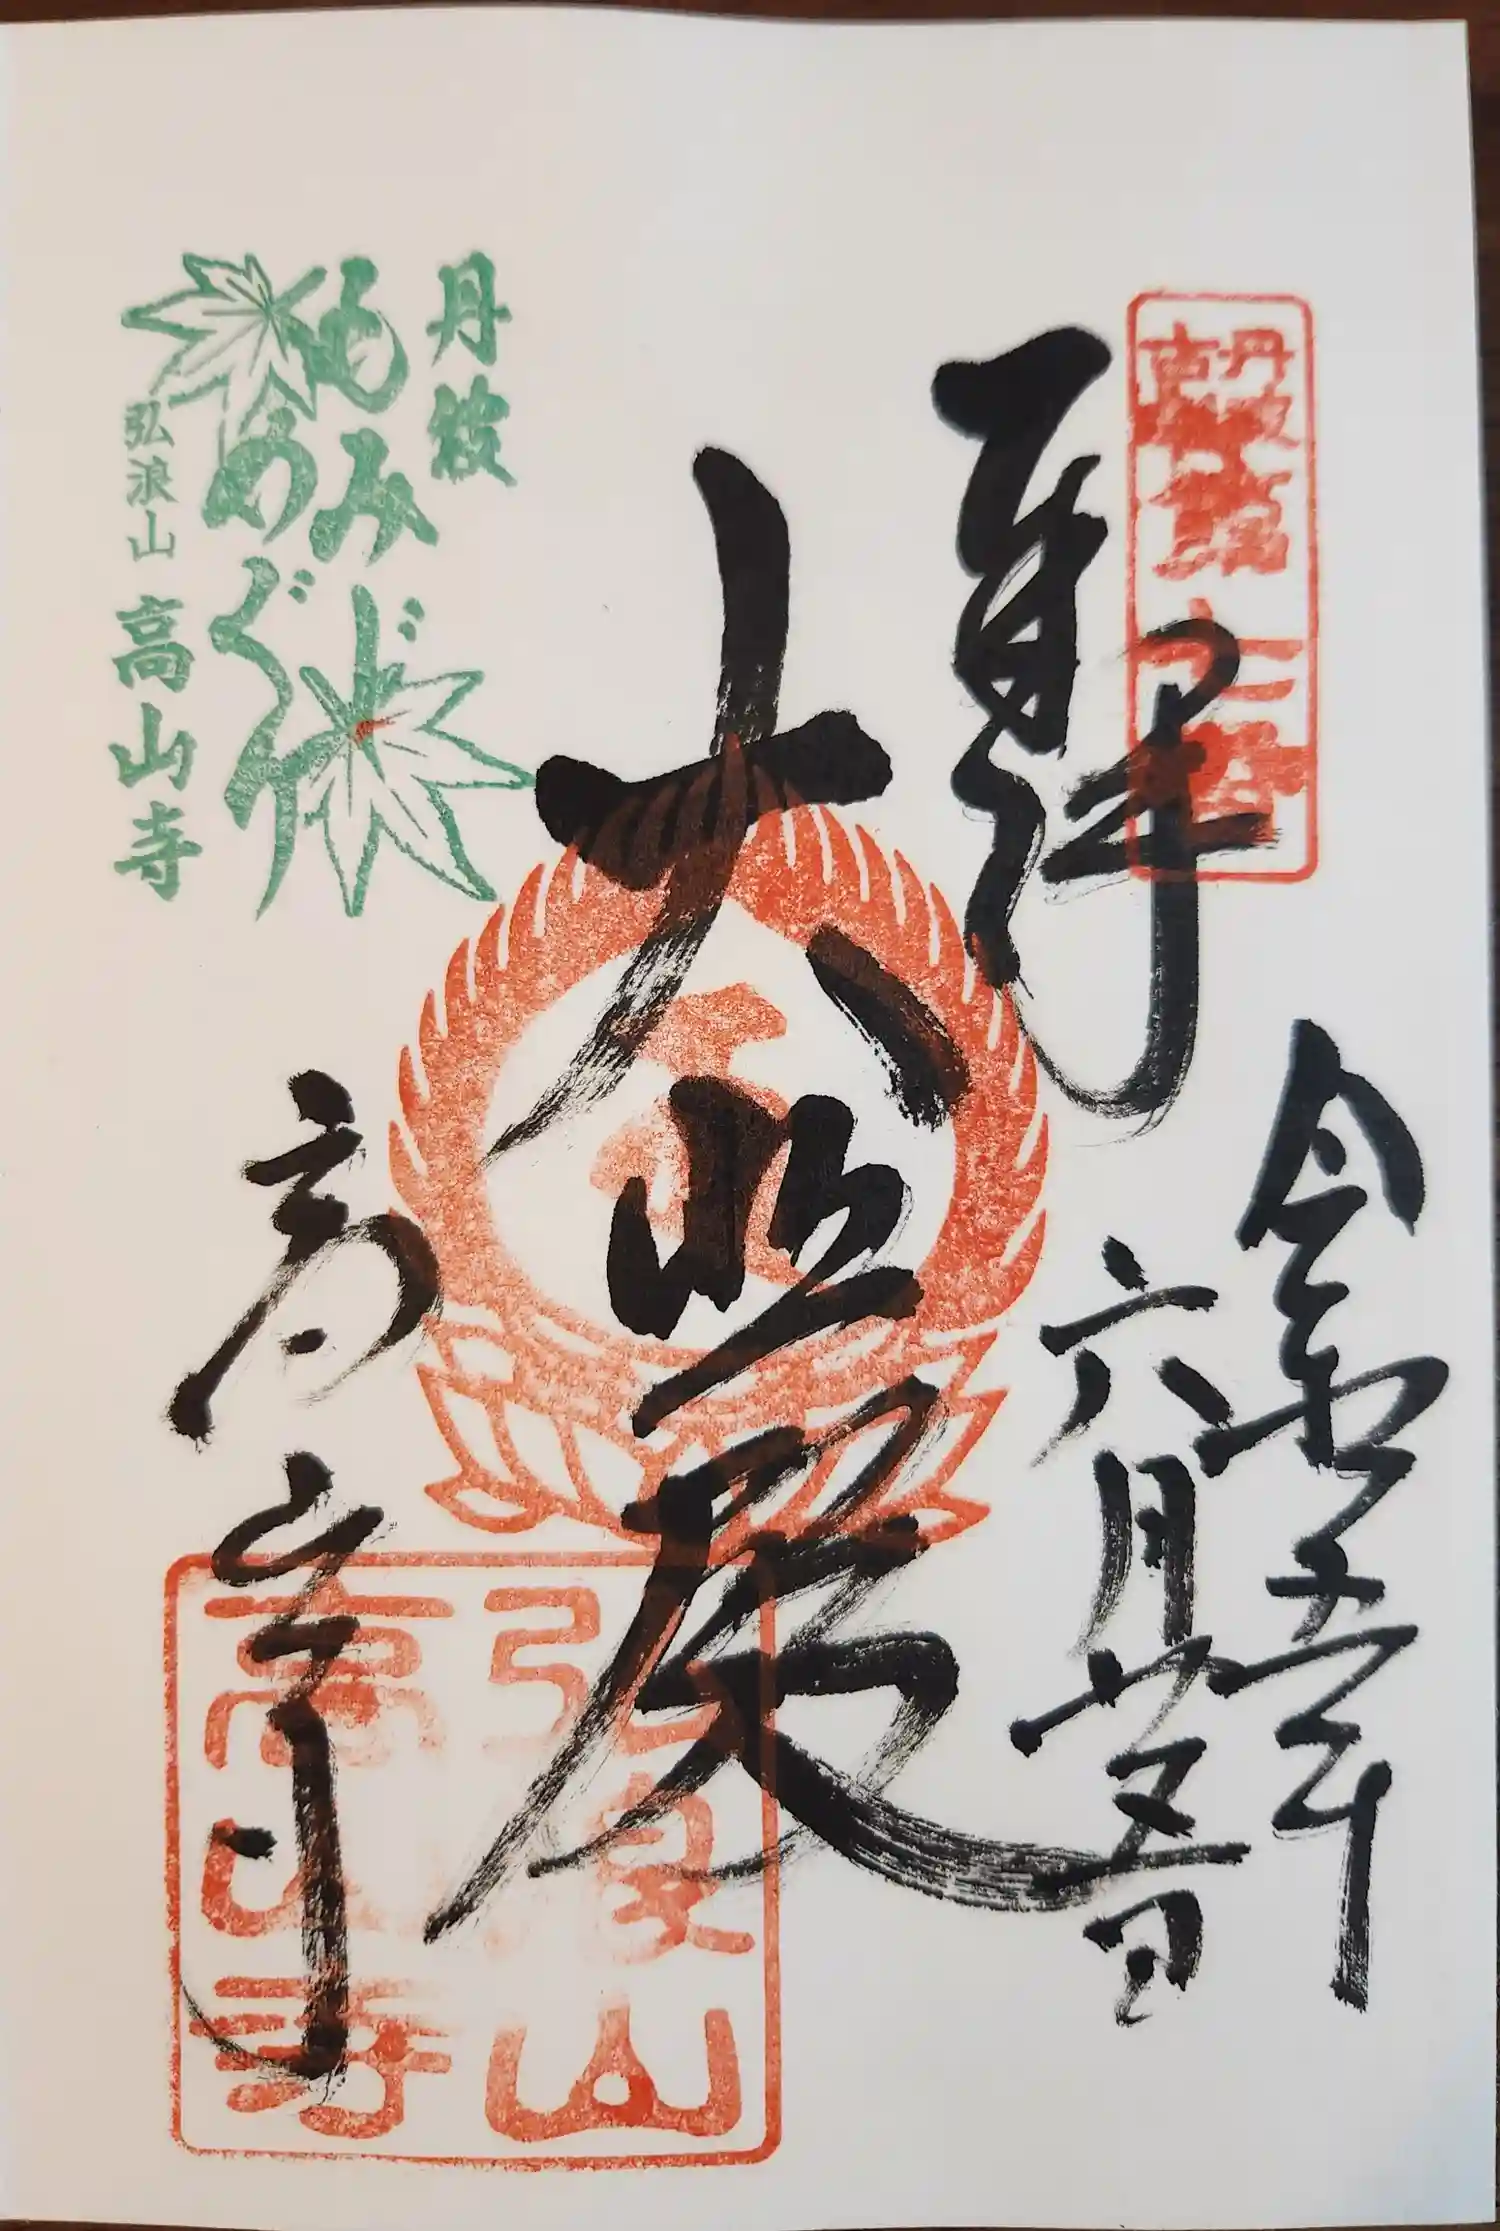 令和五年
六月廿五日
大悲殿
高山寺
丹波
もみじ
めぐり
弘浪山 高山寺
弘浪山
高山寺